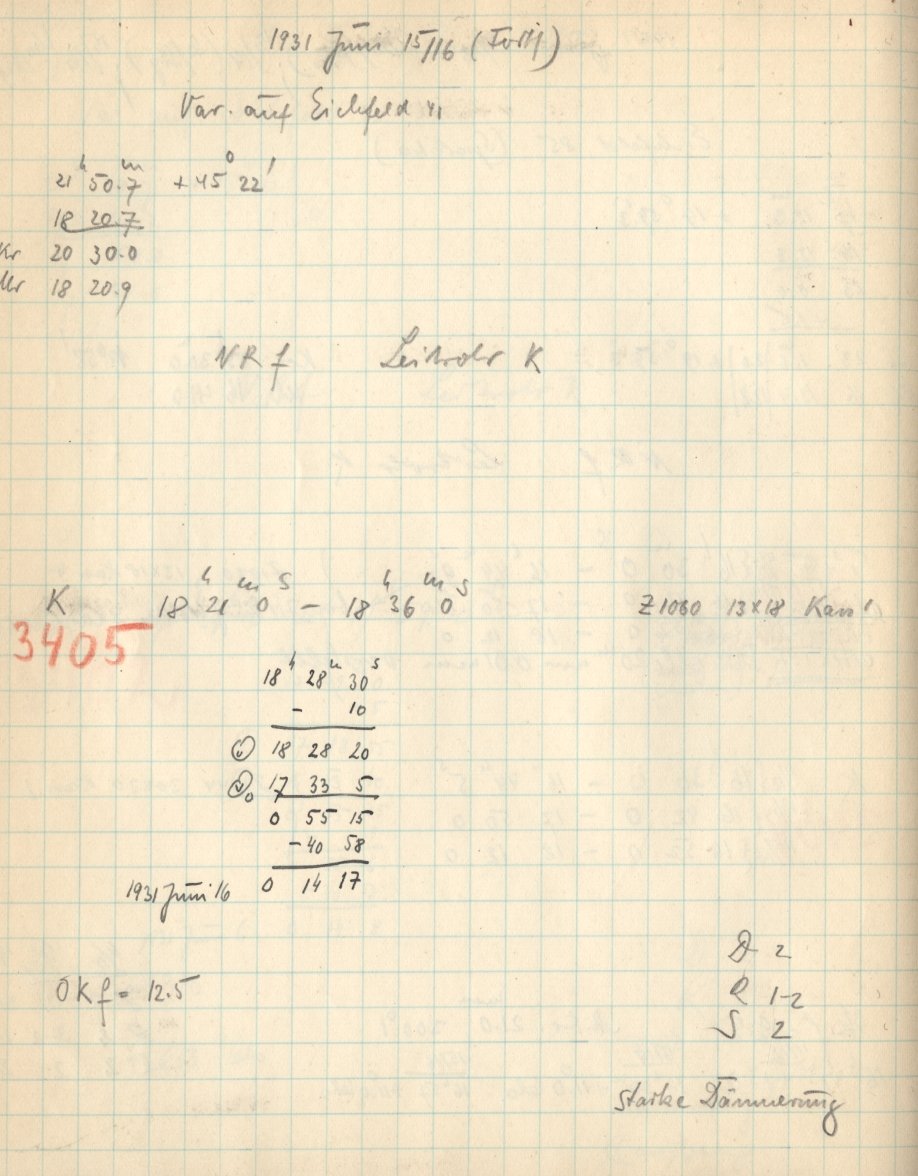 1931 Juni 15/16 (Forts)
Var. auf Eichfeld 41
21ʰ 50.7ᵐ +45° 22'
18 20.7
Kr 20 30.0
Ur 18 20.9
NR f Leitrohr K
K 18ʰ 21ᵐ 0ˢ – 18ʰ 36ᵐ 0ˢ Z1060 13x18 Kass'
3405
18ʰ 28ᵐ 30ˢ
– 10
18 28 20
17 33 5
0 55 15
–40 58
1931 Juni 16 0 14 17
D 2
OKf = 12.5 R 1-2
S 2
Starke Dämmerung